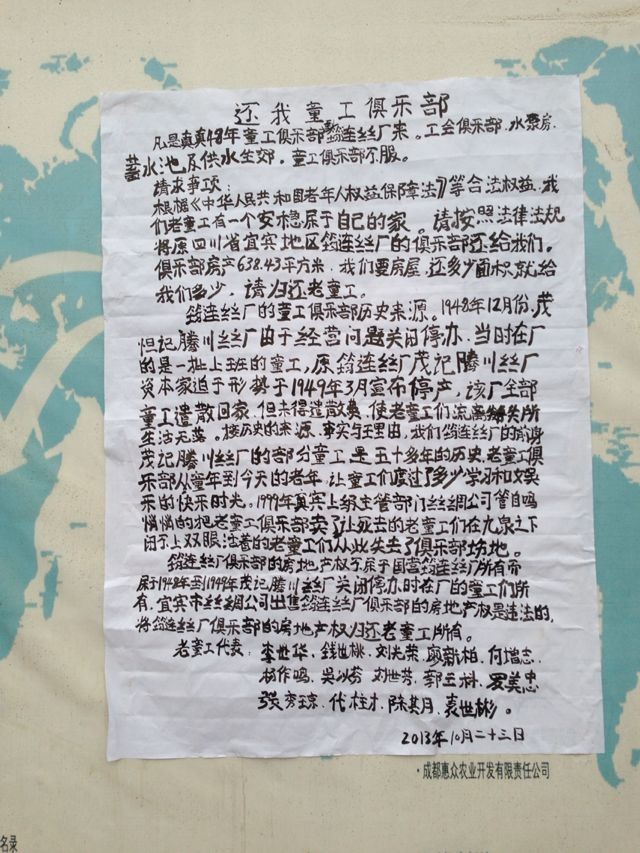 还我童工俱乐部
凡是真真48年童工俱乐部筠连丝厂来。工会俱乐部、水泵房、
蓄水池及供水生効,童工俱乐部不服。
请求事项:
根椐《中华人民共和国老年人权益保障法》等合法权益,我
们老童工有一个安稳属于自己的家。请按照法律法规
将原四川省宜宾地区筠连丝厂的俱乐部还给我们。
俱乐部房产638.43平方米,我们要房屋,还多少面积就给
我们多少,请归还老童工。
筠连丝厂的童工俱乐部历史来源。1948年12月份,茂
恒记、腾川丝厂由于经营问题关闭停办,当时在厂
的是一批上班的童工,原筠连丝厂茂记腾川丝厂
资本家迫于形势于1949年3月宣布停产,该厂全部
童工遣散回家,但未得遣散费,使老童工们流离失所
生活无落。按历史的来源、事实与理由,我们筠连丝厂的前身
茂记腾川丝厂的部份童工是五十多年的历史,老童工俱
乐部从童年到今天的老年,让童工们度过了多少学习和文娱
乐的快乐时光。1999年真宾上级主管部门丝绸公司管自鸣
悄悄的把老童工俱乐部卖了让死去的老童工们在九泉之下
闭不上双眼,活着的老童工们从此失去了俱乐部场地。
筠连丝厂俱乐部的房地产权不属于国营筠连丝厂所有而
属于1948年至1949年茂记、腾川丝厂关闭停办时在厂的童工们所
有,宜宾市丝绸公司出售筠连丝厂俱乐部的房地产权是违法的,
将筠连丝厂俱乐部的房地产权归还老童工所有。
老童工代表:李世华、钱世桃、刘光荣、廖新柏、何增志、
杨作鸣、吴以芳、刘世芳、郭玉林、罗美忠
张秀琼、代柱才、陈其月、袁世彬。
2013年10月二十三日
·成都惠众农业开发有限责任公司
名录